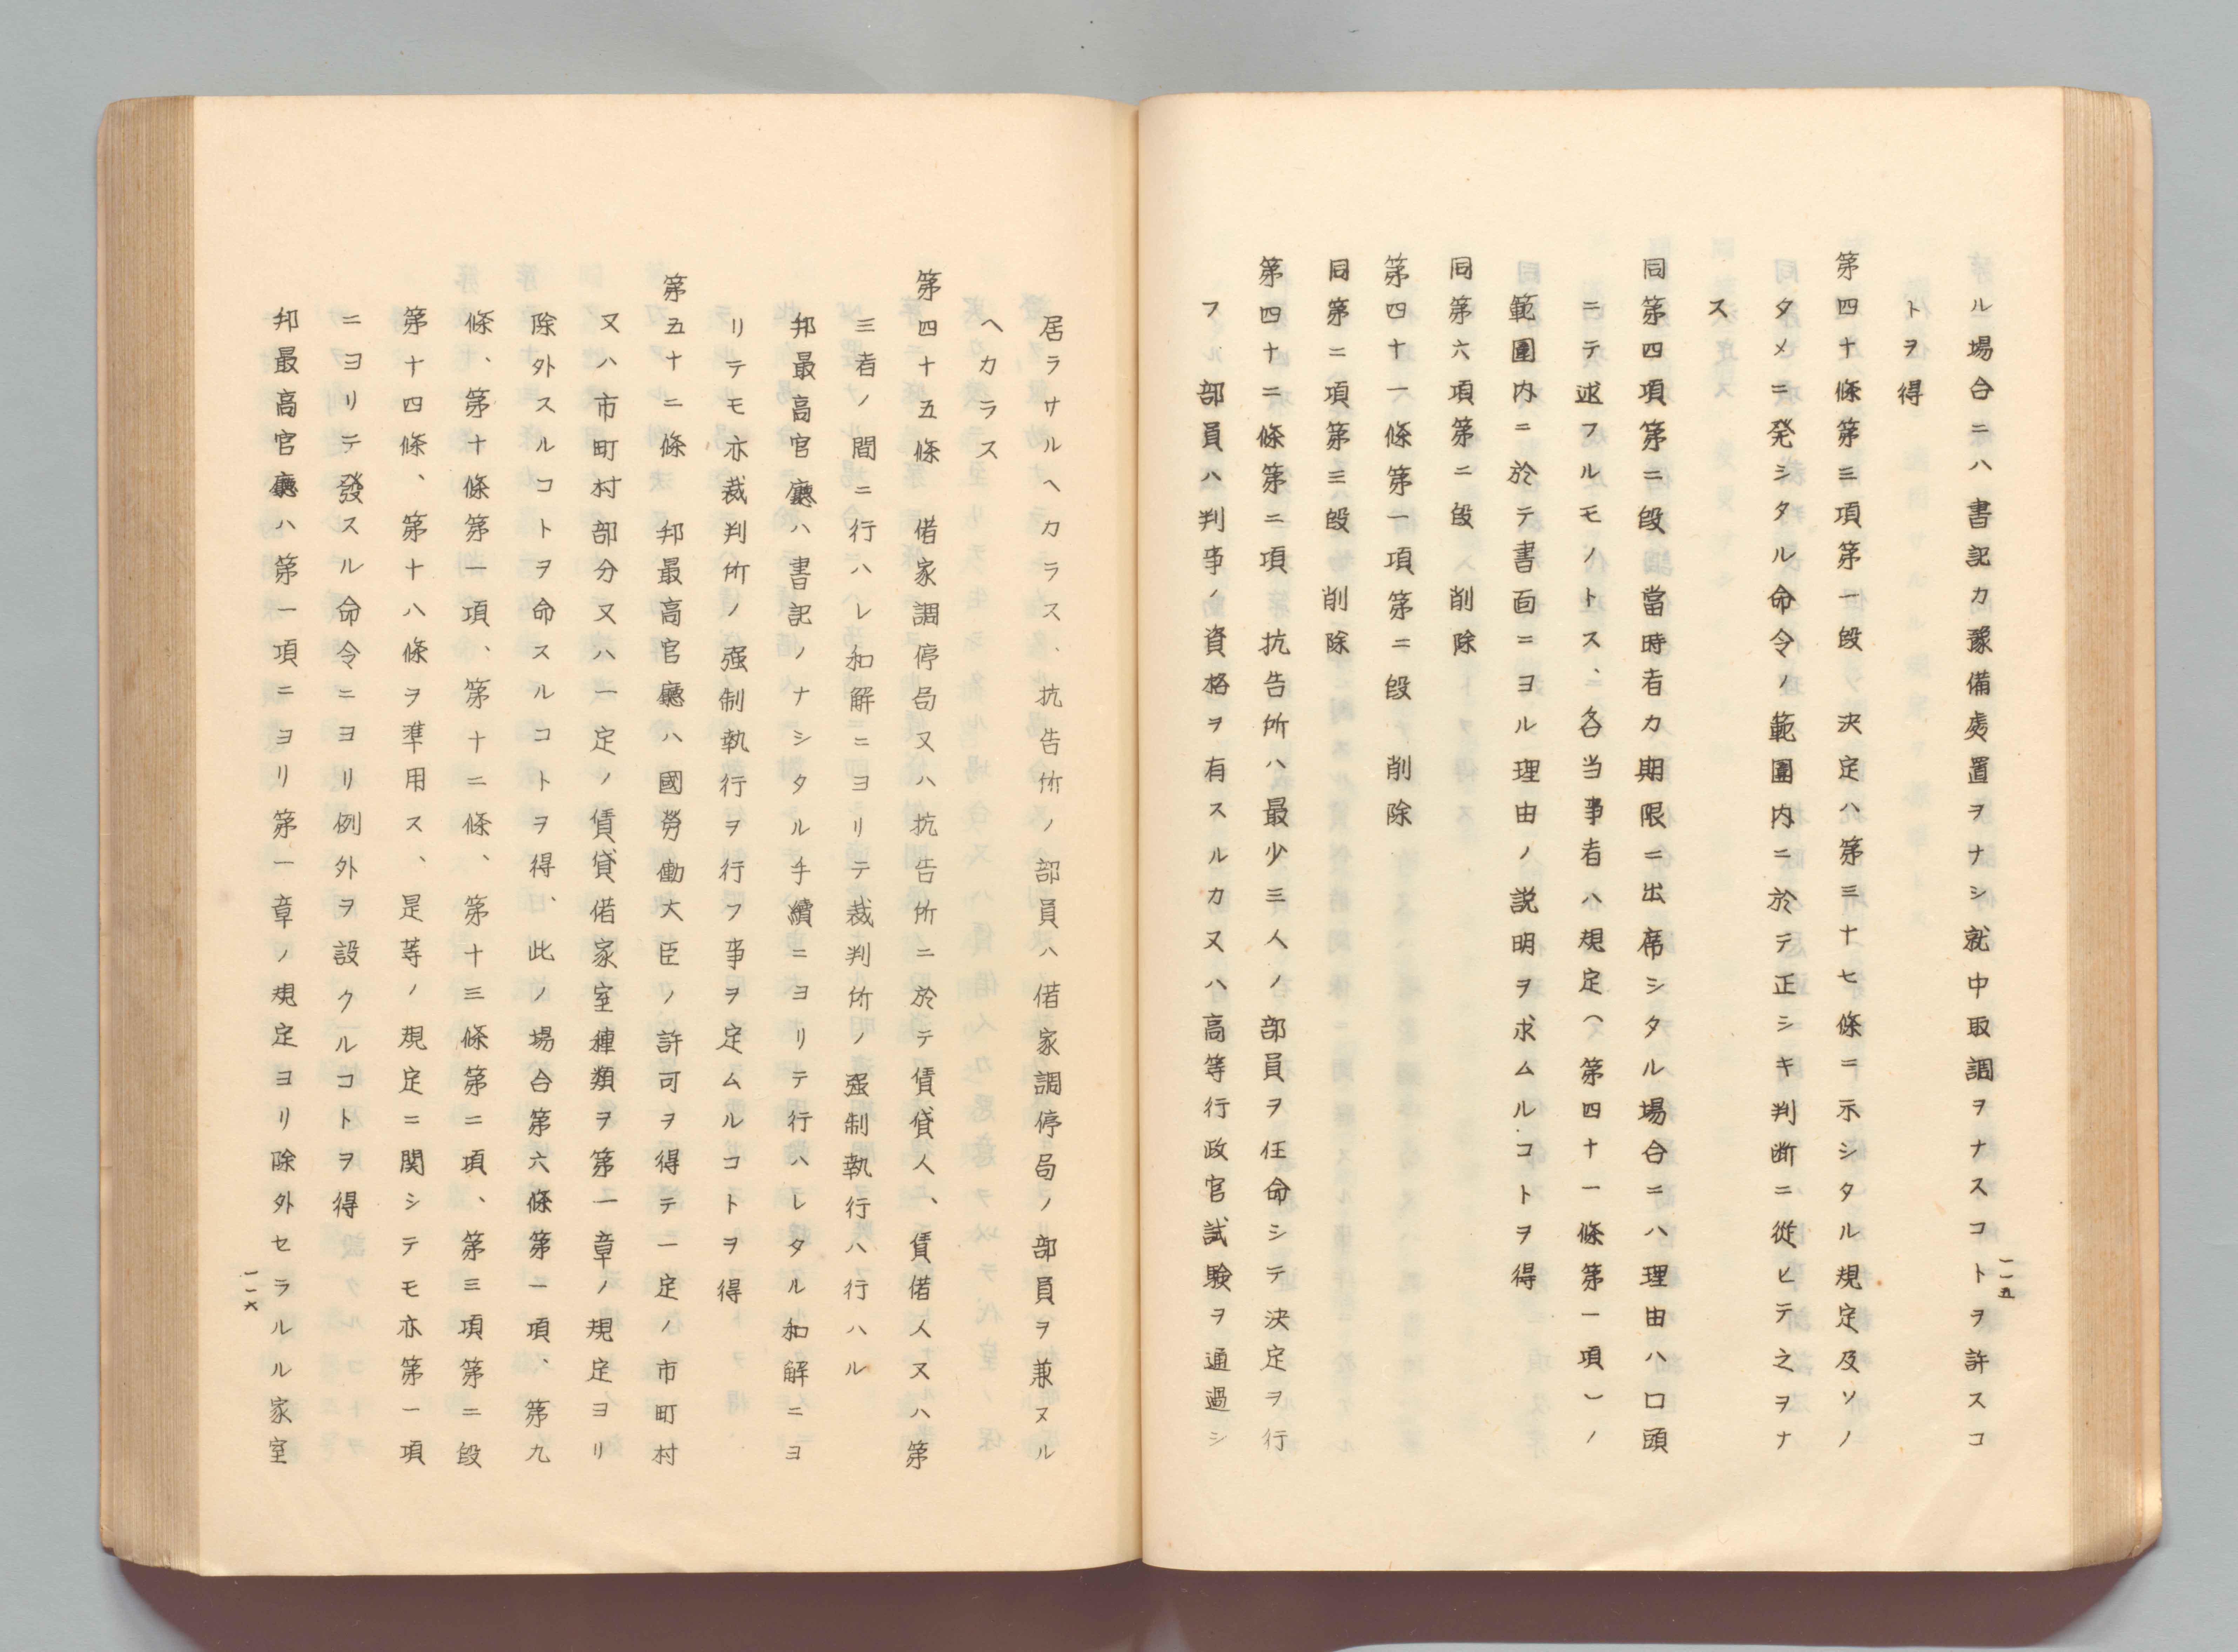 ル場合ニハ書記カ豫備処置ヲナシ就中取調ヲナスコトヲ許スコ
トヲ得
第四十條第三項第一段　決定ハ第三十七條ニ示シタル規定及ソノ
タメニ発シタル命令ノ範圍内ニ於テ正シキ判断ニ從ヒテ之ヲナ
ス
同第四項第二段　當時者カ期限ニ出席シタル場合ニハ理由ハ口頭
ニテ述フルモノトス、各当事者ハ規定（第四十一條第一項）ノ
範圍内ニ於テ書面ニヨル理由ノ説明ヲ求ムルコトヲ得
同第六項第二段　削除
第四十一條第一項第二段　削除
同第二項第三段　削除
第四十二條第二項　抗告所ハ最少三人ノ部員ヲ任命シテ決定ヲ行
フ部員ハ判事ノ資格ヲ有スルカ又ハ高等行政官試験ヲ通過シ
一一五
居ラサルヘカラス、抗告所ノ部員ハ借家調停局ノ部員ヲ兼ヌル
ヘカラス
第四十五條　借家調停局又ハ抗告所ニ於テ賃貸人、賃借人又ハ第
三者ノ間ニ行ハレ和解ニヨリテ裁判所ノ强制執行ハ行ハル
邦最高官廳ハ書記ノナシタル手續ニヨリテ行ハレタル和解ニヨ
リテモ亦裁判所ノ强制執行ヲ行フ事ヲ定ムルコトヲ得
第五十二條　邦最高官廳ハ國勞働大臣ノ許可ヲ得テ一定ノ市町村
又ハ市町村部分又ハ一定ノ賃貸借家室種類ヲ第一章ノ規定ヨリ
除外スルコトヲ命スルコトヲ得、此ノ場合第六條第一項、第九
條、第十條第一項、第十二條、第十三條第二項、第三項第二段
第十四條、第十八條ヲ準用ス、是等ノ規定ニ関シテモ亦第一項
ニヨリテ發スル命令ニヨリ例外ヲ設クルコトヲ得
邦最高官廳ハ第一項ニヨリ第一章ノ規定ヨリ除外セラルル家室
一一六